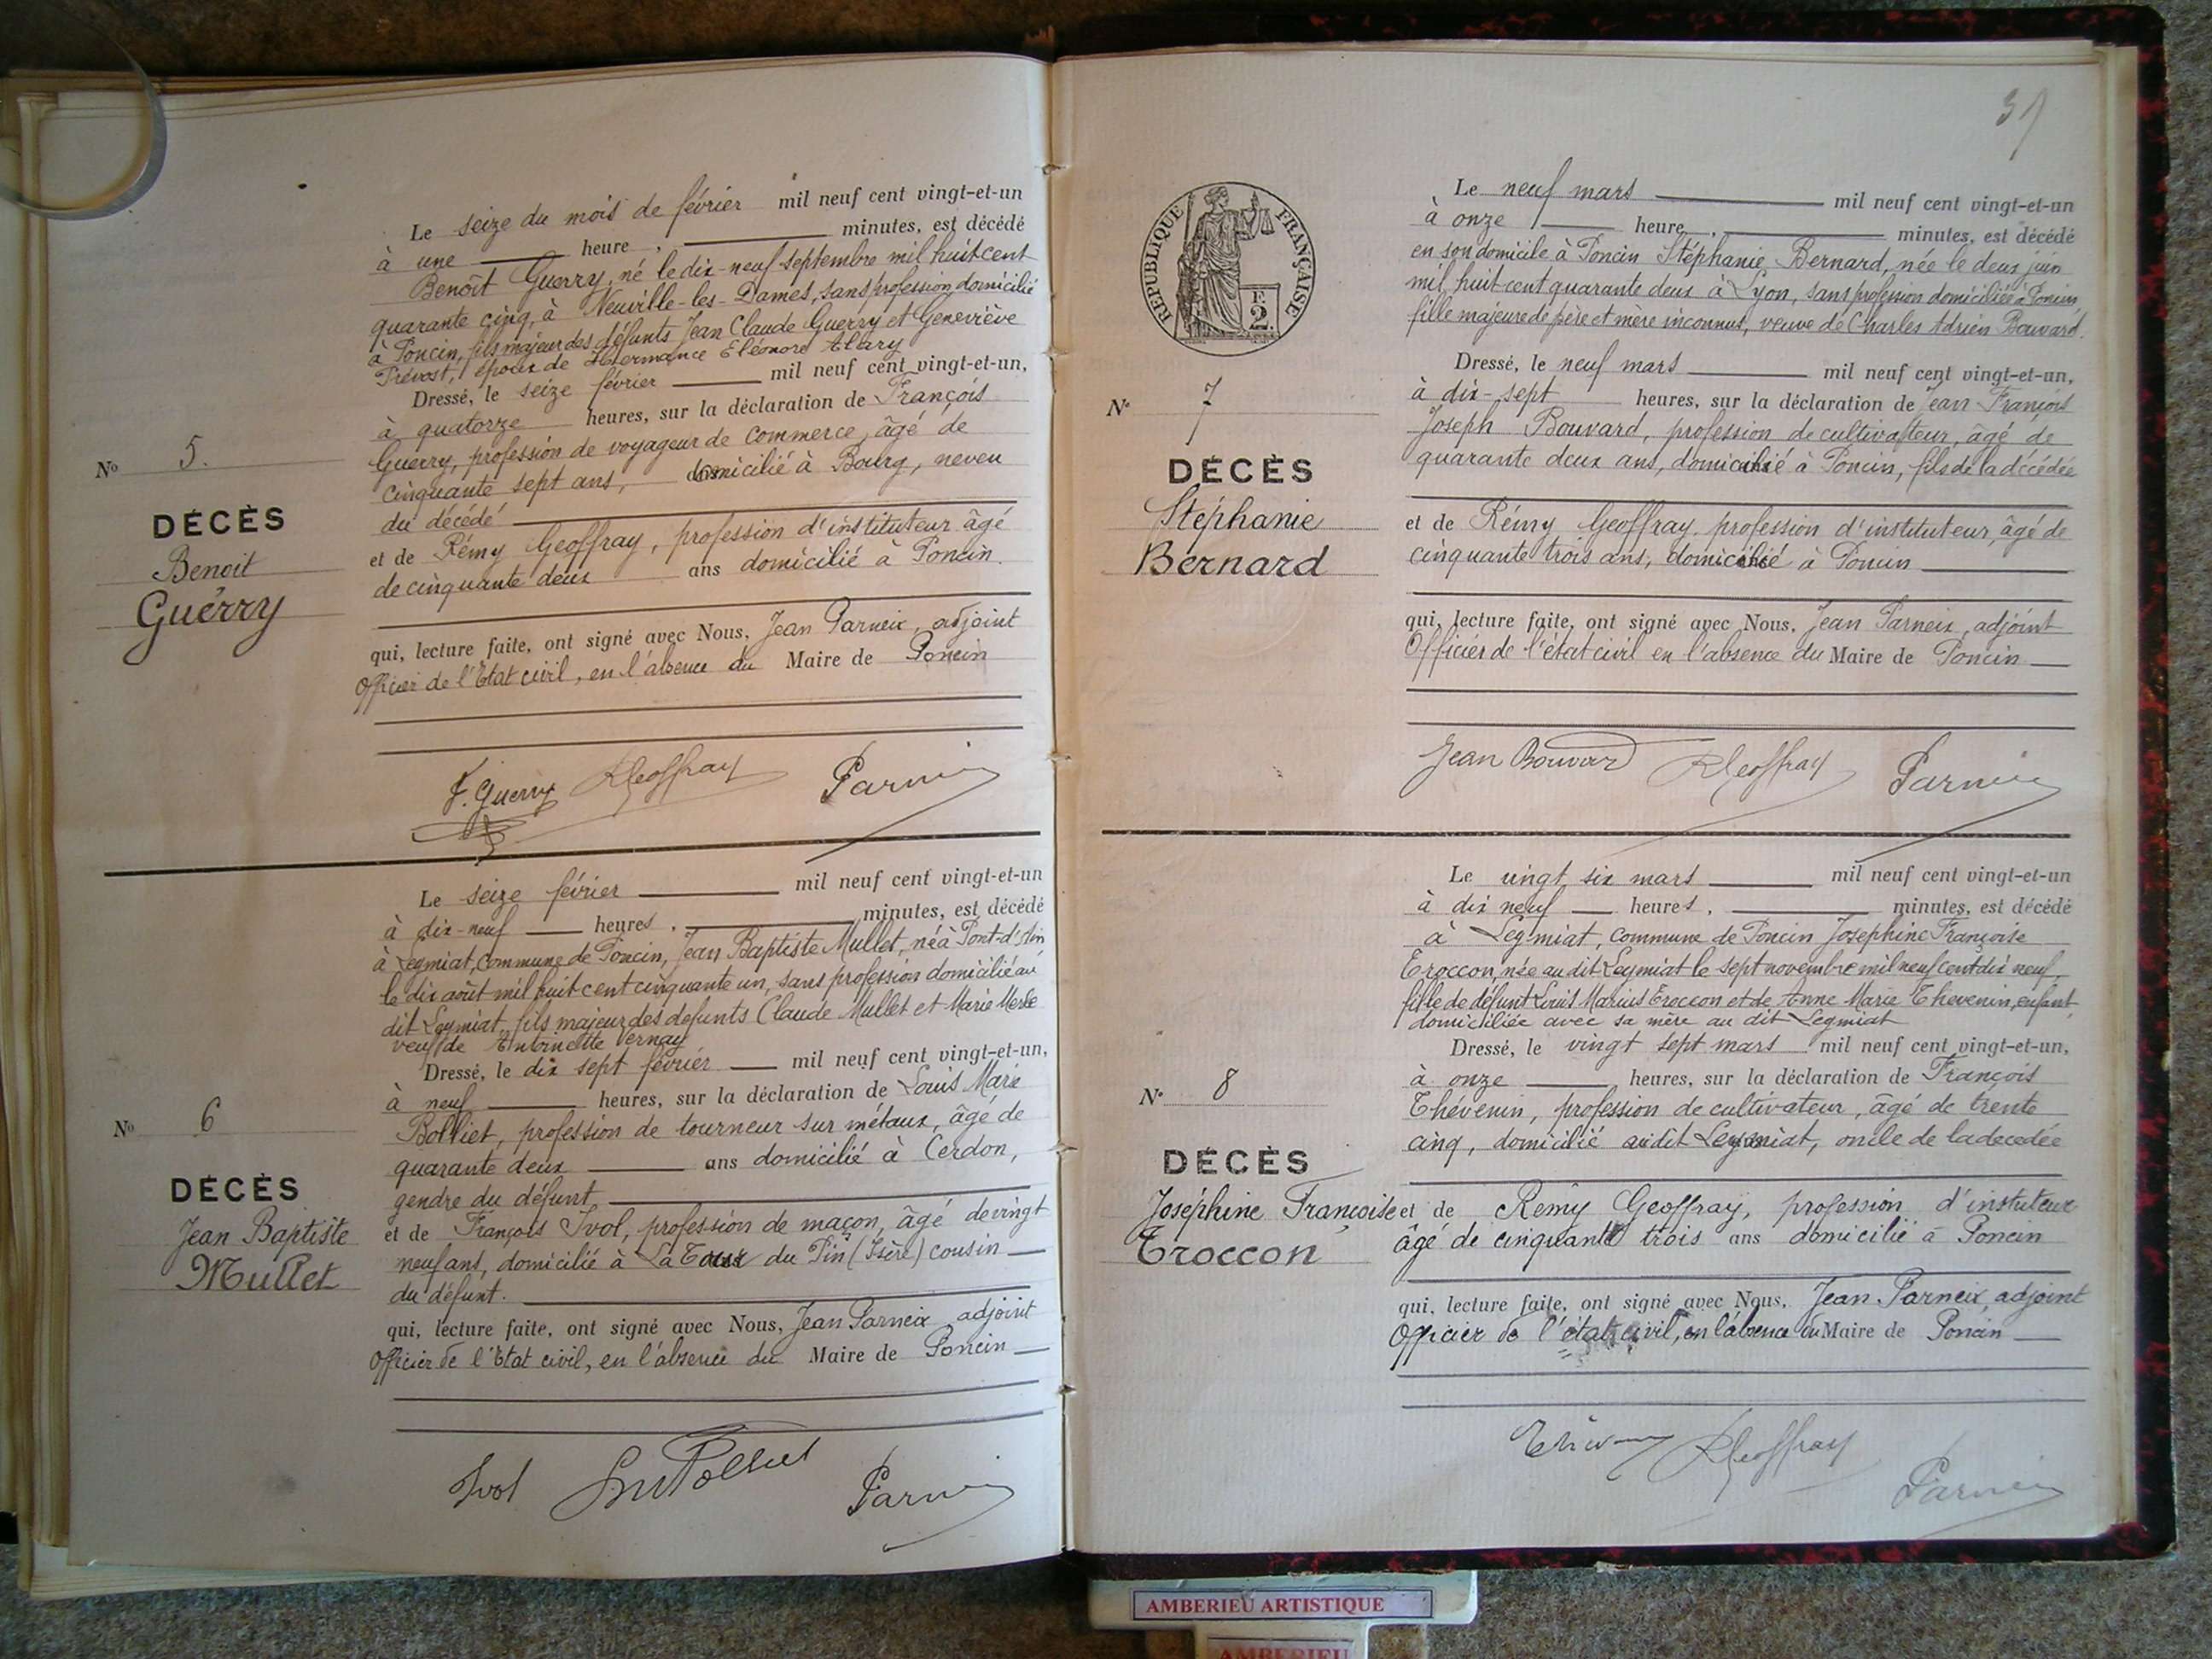 Le seize du mois de février mil neuf cent vingt-et-un
à une heure , minutes, est décédé
Benoît Guerry, né le dix-neuf septembre mil huit cent
quarante cinq, à Neuville-les-Dames, sans profession, domicilié
à Poncin, fils majeur des défunts Jean Claude Guerry et Geneviève
Prévost, époux de Hermance Eléonore Alary
Dressé, le seize février mil neuf cent vingt-et-un,
à quatorze heures, sur la déclaration de François
Guerry, profession de voyageur de commerce, âgé de
cinquante sept ans, domicilié à Bourg, neveu
du décédé
et de Rémy Geoffray, profession d'instituteur âgé
de cinquante deux ans domicilié à Poncin.
qui, lecture faite, ont signé avec Nous, Jean Parneix, adjoint
Officier de l'Etat civil, en l'absence du Maire de Poncin
No 5.
DÉCÈS
Benoit
Guérry
F. Guerry RGeoffray Parneix
Le seize février mil neuf cent vingt-et-un
à dix-neuf heures , minutes, est décédé
à Leymiat, commune de Poncin, Jean Baptiste Mullet, né à Pont-d'Ain
le dix août mil huit cent cinquante un, sans profession domicilié au
dit Leymiat, fils majeur des défunts Claude Mullet et Marie Merle
veuf de Antoinette Vernay
Dressé, le dix sept février mil neuf cent vingt-et-un,
à neuf heures, sur la déclaration de Louis Marie
Bolliet, profession de tourneur sur métaux, âgé de
quarante deux ans domicilié à Cerdon,
gendre du défunt
et de François Ivol, profession de maçon, âgé de vingt
neuf ans, domicilié à La Tour du Pin (Isère) cousin
du défunt.
qui, lecture faite, ont signé avec Nous, Jean Parneix adjoint
Officier de l'Etat civil, en l'absence du Maire de Poncin
No 6
DÉCÈS
Jean Baptiste
Mullet
Ivol Parneix
37
RÉPUBLIQUE FRANÇAISE
2
Le neuf mars mil neuf cent vingt-et-un
à onze heure , minutes, est décédé
en son domicile à Poncin Stéphanie Bernard, née le deux juin
mil huit cent quarante deux à Lyon, sans profession domiciliée à Poncin
fille majeure de père et mère inconnus, veuve de Charles Adrien Bouvard.
Dressé, le neuf mars mil neuf cent vingt-et-un,
à dix-sept heures, sur la déclaration de Jean François
Joseph Bouvard, profession de cultivateur, âgé de
quarante deux ans, domicilié à Poncin, fils de la décédée
et de Rémy Geoffray profession d'instituteur, âgé de
cinquante trois ans, domicilié à Poncin
qui, lecture faite, ont signé avec Nous, Jean Parneix, adjoint
Officier de l'état civil en l'absence du Maire de Poncin
No 7
DÉCÈS
Stéphanie
Bernard
Jean Bouvard RGeoffray Parneix
Le vingt six mars mil neuf cent vingt-et-un
à dix neuf heures , minutes, est décédé
à Leymiat, commune de Poncin Joséphine Françoise
Troccon, née au dit Leymiat le sept novembre mil neuf cent dix neuf,
fille de défunt Louis Marius Troccon et de Anne Marie Thevenin, enfant,
domiciliée avec sa mère au dit Leymiat
Dressé, le vingt sept mars mil neuf cent vingt-et-un,
à onze heures, sur la déclaration de François
Thévenin, profession de cultivateur, âgé de trente
cinq, domicilié audit Leymiat, oncle de la decedée
et de Rémy Geoffray, profession d'instuteur
âgé de cinquante trois ans domicilié à Poncin
qui, lecture faite, ont signé avec Nous, Jean Parneix, adjoint
Officier de l'état civil, en l'absence du Maire de Poncin
No 8
DÉCÈS
Joséphine Françoise
Troccon
RGeoffray Parneix
AMBERIEU ARTISTIQUE
AMBERIEU